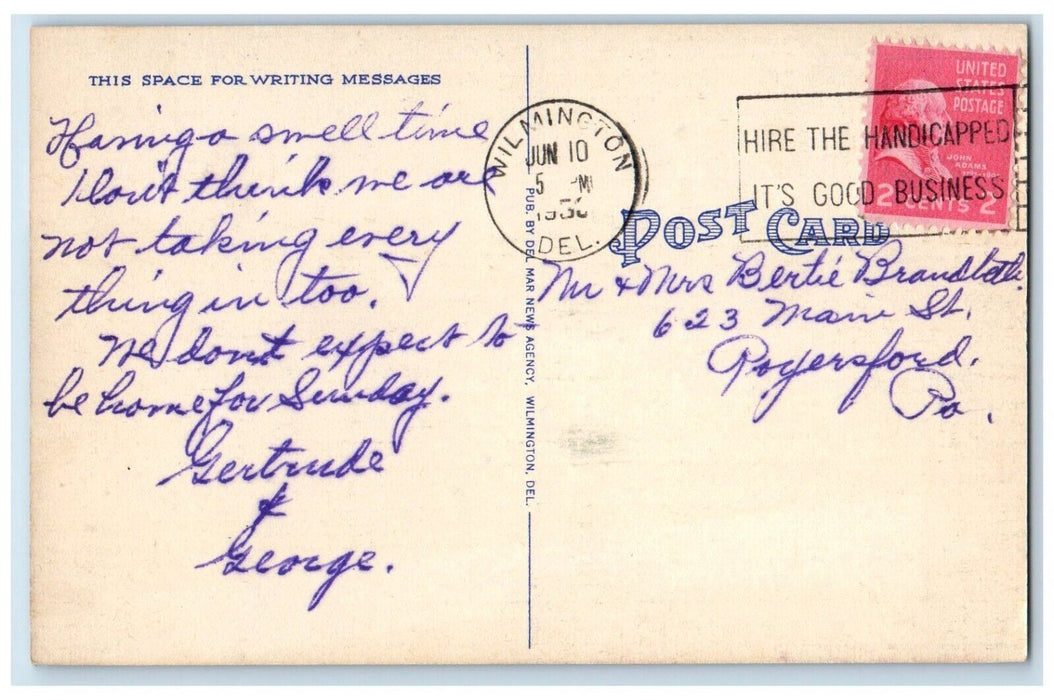 THIS SPACE FOR WRITING MESSAGES
Having a smell time
I don't think we are
not taking every
thing in too.
We dont expect to
be home for Sunday.
Gertrude
&
George.
PUB. BY DEL MAR NEWS AGENCY, WILMINGTON, DEL.
WILMINGTON
JUN 10
5 PM
DEL.
HIRE THE HANDICAPPED
IT'S GOOD BUSINESS
UNITED
STATES
POSTAGE
JOHN
ADAMS
2 CENTS 2
POST CARD
Mr & Mrs Bertie
623 Main St.
Royersford.
Pa.